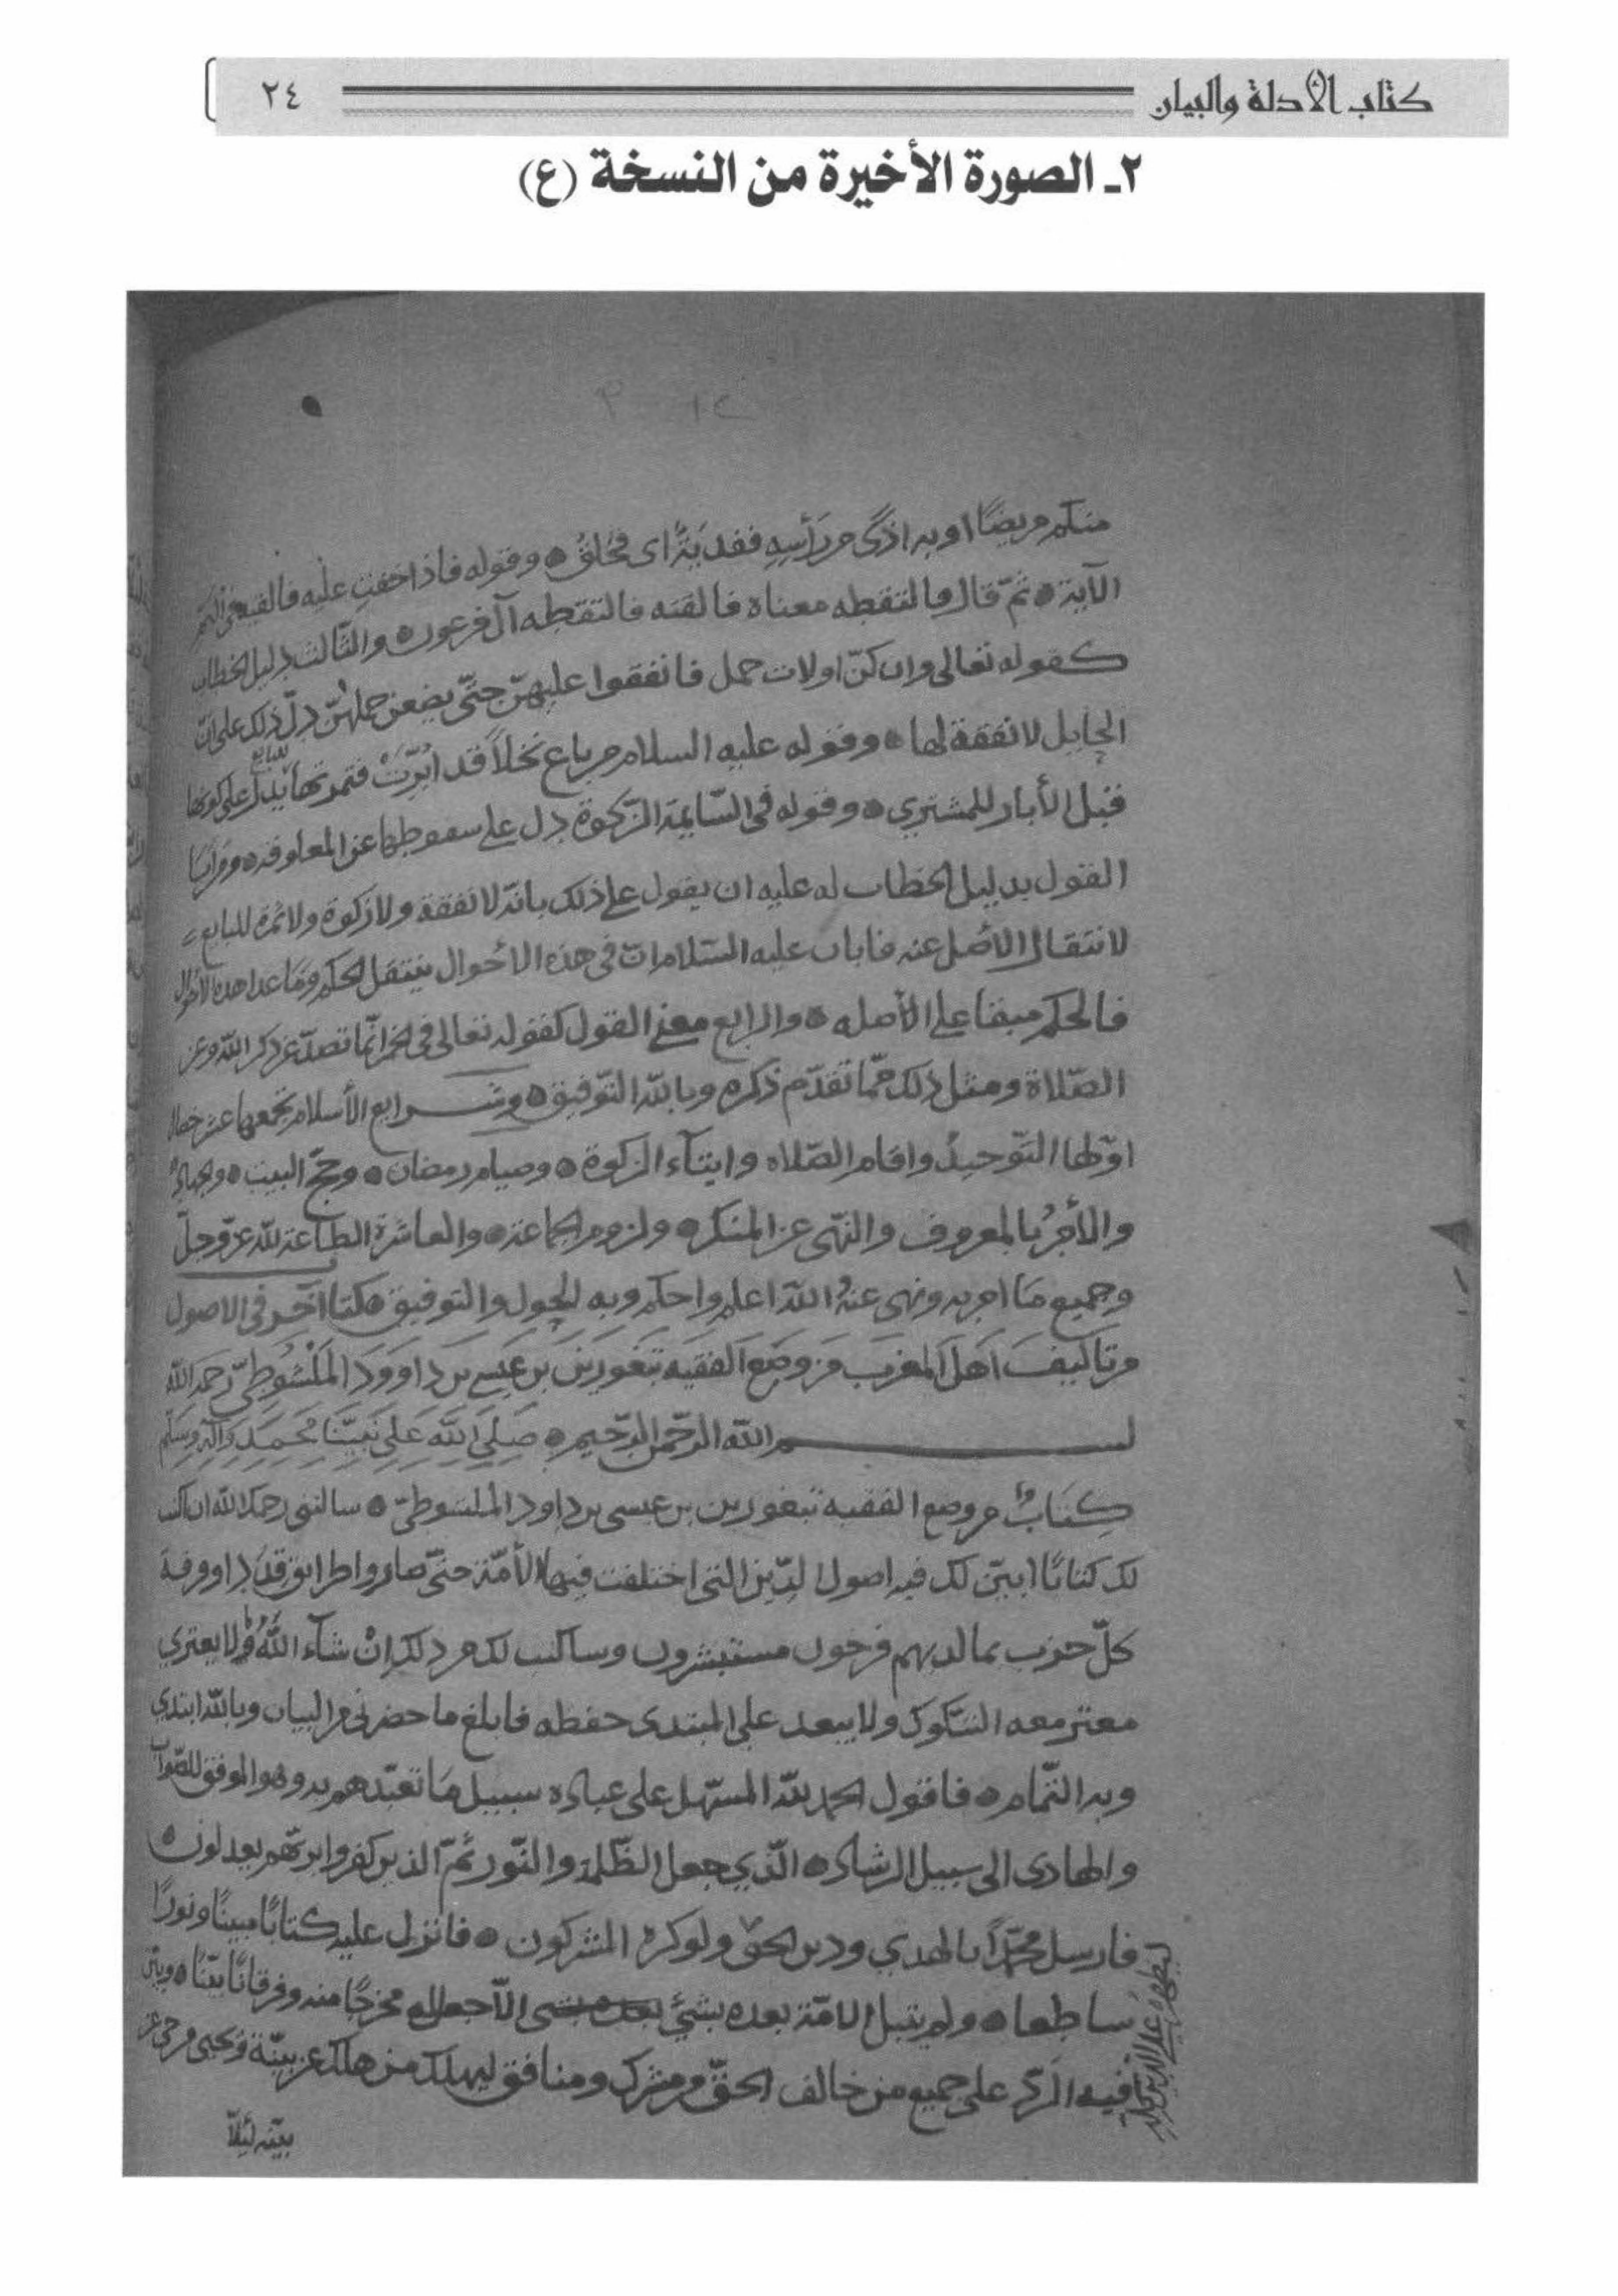 كتاب الأدلة والبيان
٢٤
٢ـ الصورة الأخيرة من النسخة (ع)
منكم مريضًا او به اذًى من رأسِهِ ففديَةٌ اى فحُلق ۞ وقوله فاذا خفتِ عليه فالقيه فى اليم
الآية ۞ ثمّ قال فالتقطه معناه فالقته فالتقطه آل فرعون ۞ والثّالث دليل الخطاب
كقوله تعالى وان كنّ اولات حمل فانفقوا عليهنّ حتّى يضعن حملهُنّ دلّ ذلك على انّ
الحايل لا نفقة لها ۞ وقوله عليه السلام من باع نخلاً قد ابّرتْ فثمرتها للبايع يدلّ على كونها
قبل الأبار للمشتري ۞ وقوله فى السّايمة الزّكوة دل على سقوطها عن المعلوفه ۞
القول بدليل الخطاب له عليه ان يقول على ذلك بانّه لا نفقة ولا زكوة ولا ثمرة للبايع
لانتقال الأصل عنه فابان عليه السّلام ان فى هذه الأحوال ينتقل الحكم وما عدا هذه الاحوال
فالحكم مبقا على الأصله ۞ والرابع معنى القول كقوله تعالى فى الخمر انّما تصدّ عن ذكر اللّه وعن
الصّلاة ومثل ذلك ممّا تقدّم ذكره وباللّه التّوفيق ۞ وشرايع الأسلام تجمعها عشر خصال
اوّلها التّوحيدُ واقام الصّلاه وايتآء الزكوة ۞ وصيام رمضان ۞ وحجّ البيت ۞ والجهاد
والأمرُ بالمعروف والنّهى عن المنكر ۞ ولزوم الجماعة ۞ والعاشرة الطاعة للّه عزّ وجلّ
وجميع مَا امر به ونهى عنهُ اللّه اعلم واحكم وبه الحول والتوفيق ۞ كتاب آخر فى الاصول
من تاليف اهل المغرب من وضع الفقيه تبغورين بن عيسى بن داوود الملشوطيّ رحمه اللّه
بســـم اللّه الرّحمن الرّحيم ۞ صلى الله على نبيّنا محمد وآله وسلم
كتَابٌ من وضع الفقيه تبغورين بن عيسى بن داود الملشوطىّ ۞ سالتنى رحمك اللّه ان اكتب
لك كتابًا ابيّن لك فيه اصول الدّين التى اختلفت فيها الأمّة حتّى صاروا طرايق قددا
كلّ حزب بما لديهم فرحون مستبشرون وساكتب لك من ذلك إنْ شآء اللّهُ ولا يعتري
معتز معه الشكوك ولا يبعد على المبتدى حفظه فابلغ ما حضرنى من البيان وباللّه ابتدي
وبه التّمام ۞ فاقول الحمد للّه المسّهل على عباده سبيل مَا تعبّدهم به وهو الموفق للصّواب
والهادى الى سبيل الرشاد ۞ الّذي جعل الظّلمة والنّور ثمّ الذين كفروا بربّهم يعدلون ۞
فارسل محمّدًا بالهدي ودين الحقّ ولو كره المشركون ۞ فانزل عليه كتابًا مبينًا ونورًا
ليظهره على الدين كله
سَاطعا ۞ ولم يتبل الامّة بعده بشىء الّا جعل له مخرجًا منه وفرقانًا بيّنًا ۞ وبيّن
فيه الردّ على جميع من خالف الحقّ من مشرك ومنافق ليهلك من هلك عن بيّنة ويحيى من حى عن
بيّنه لئلّا